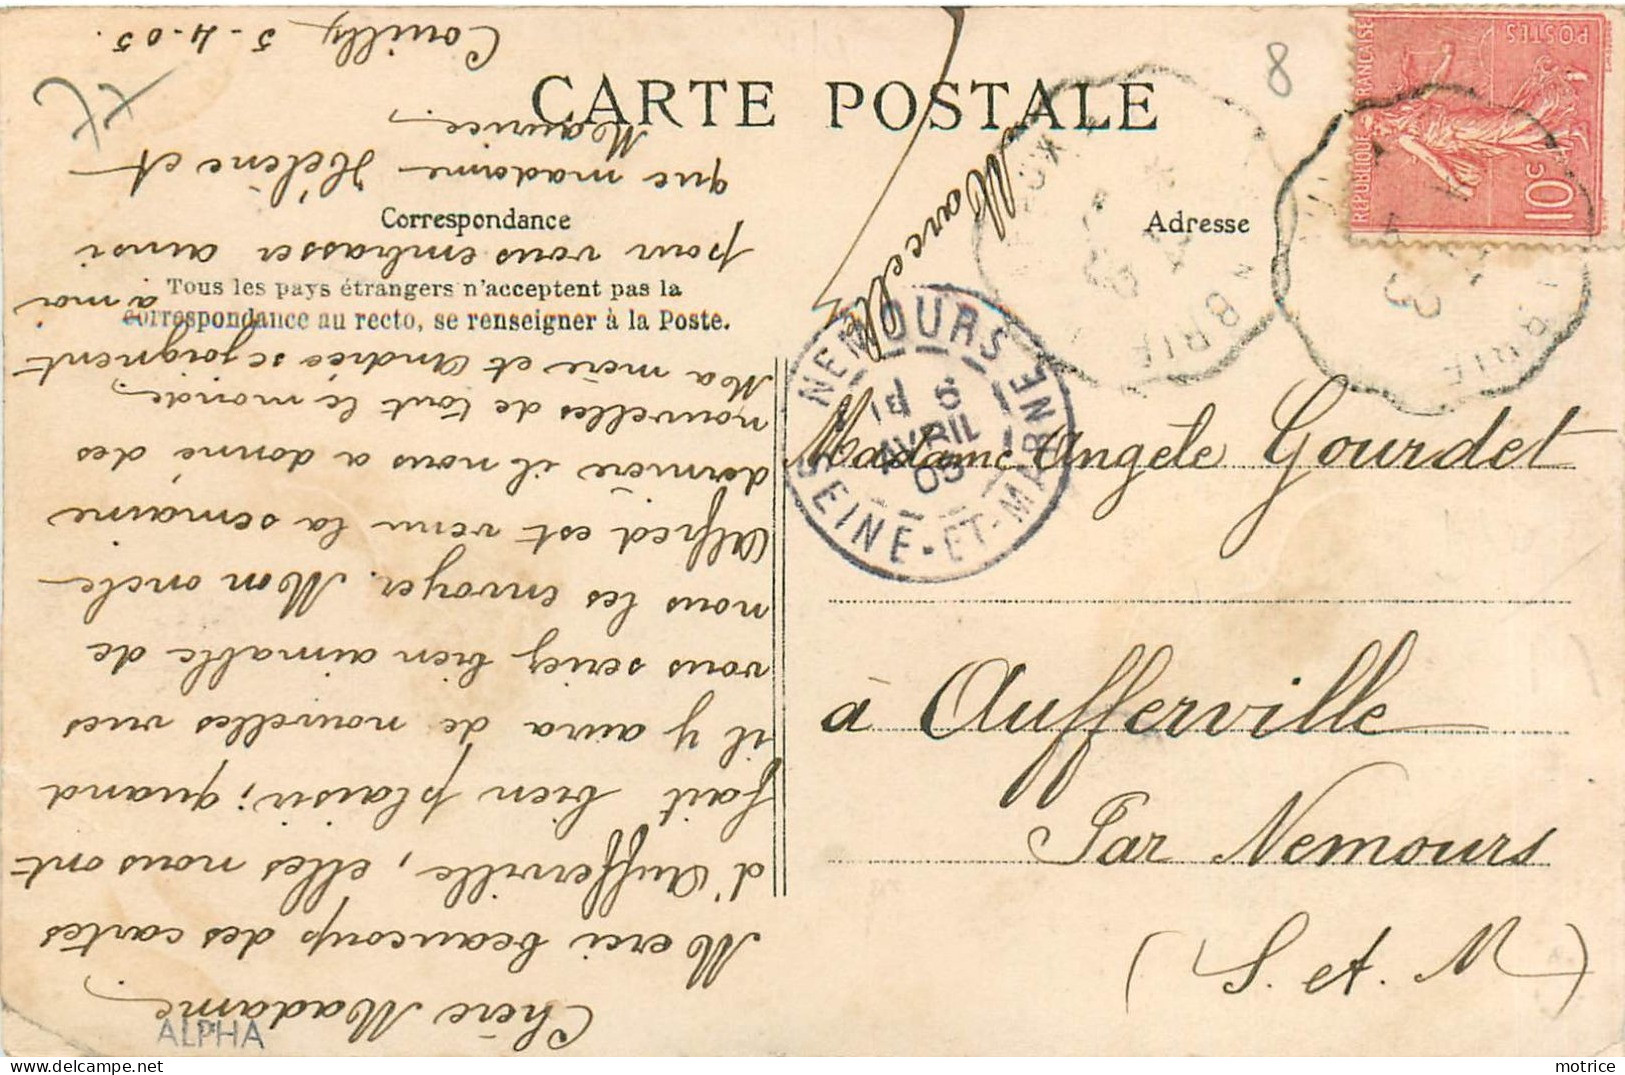 CARTE POSTALE
Correspondance
Adresse
Tous les pays étrangers n'acceptent pas la
correspondance au recto, se renseigner à la Poste.
REPUBLIQUE FRANÇAISE
POSTES
10c
8
NEMOURS
6
AVRIL
05
SEINE-ET-MARNE
BRIE
BRIE
Madame Angèle Gourdet
à Aufferville
Par Nemours
(S. et. M)
Couilly 5-4-05.
Chère Madame
Merci beaucoup des cartes
d'Aufferville, elles nous ont
fait bien plaisir; quand
il y aura de nouvelles vues
vous seriez bien aimable de
nous les envoyer. Mon oncle
Alfred est venu la semaine
dernière il nous a donné des
nouvelles de tout le monde.
Ma mère et Andrée se joignent
à moi
pour vous embrasser ainsi
que madame Hélène et
Maurice.
Marcelle
ALPHA
motrice